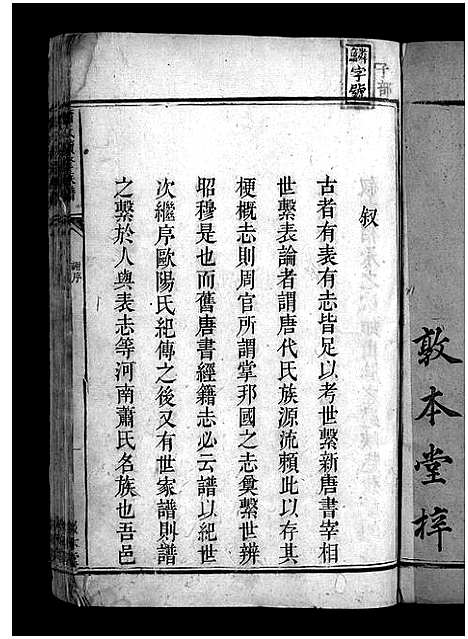 敦本堂梓
鱗字號
叙
古者有表有志皆足以考世繫新唐書宰相
世繫表論者謂唐代氏族源流賴此以存其
梗概志則周官所謂掌邦國之志奠繫世辨
昭穆是也而舊唐書經籍志必云譜以紀世
次繼序歐陽氏紀傳之後又有世家譜則譜
之繫於人與表志等河南蕭氏名族也吾邑